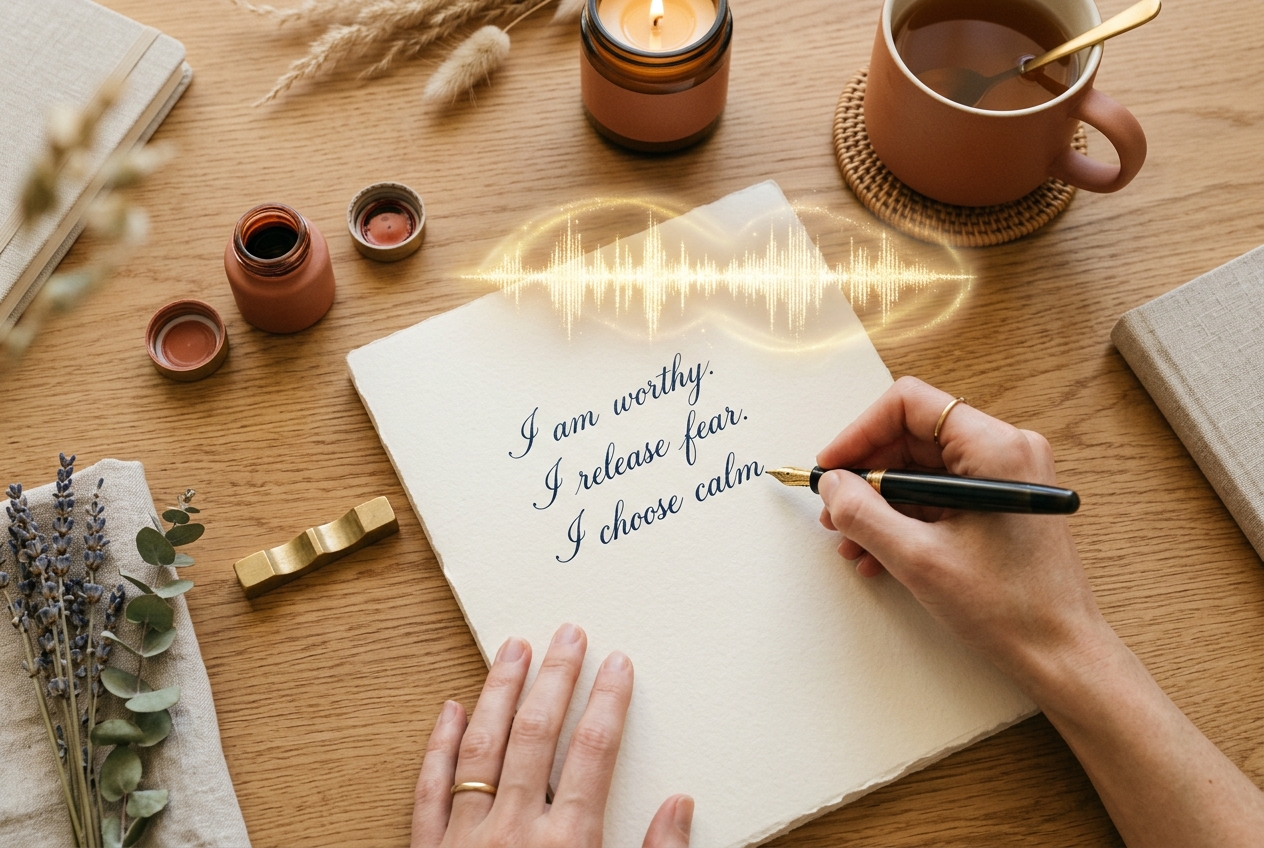 I am worthy.
I release fear.
I choose calm